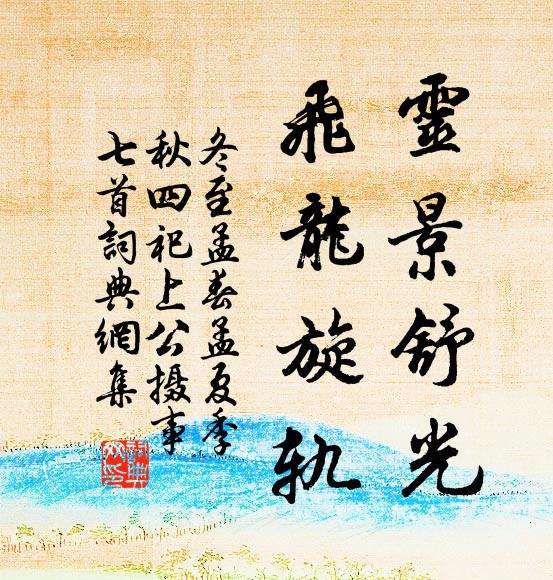 靈景舒光
飛龍旋軌
冬至孟春孟夏季
秋四祀上公摄事
七首詞典網集